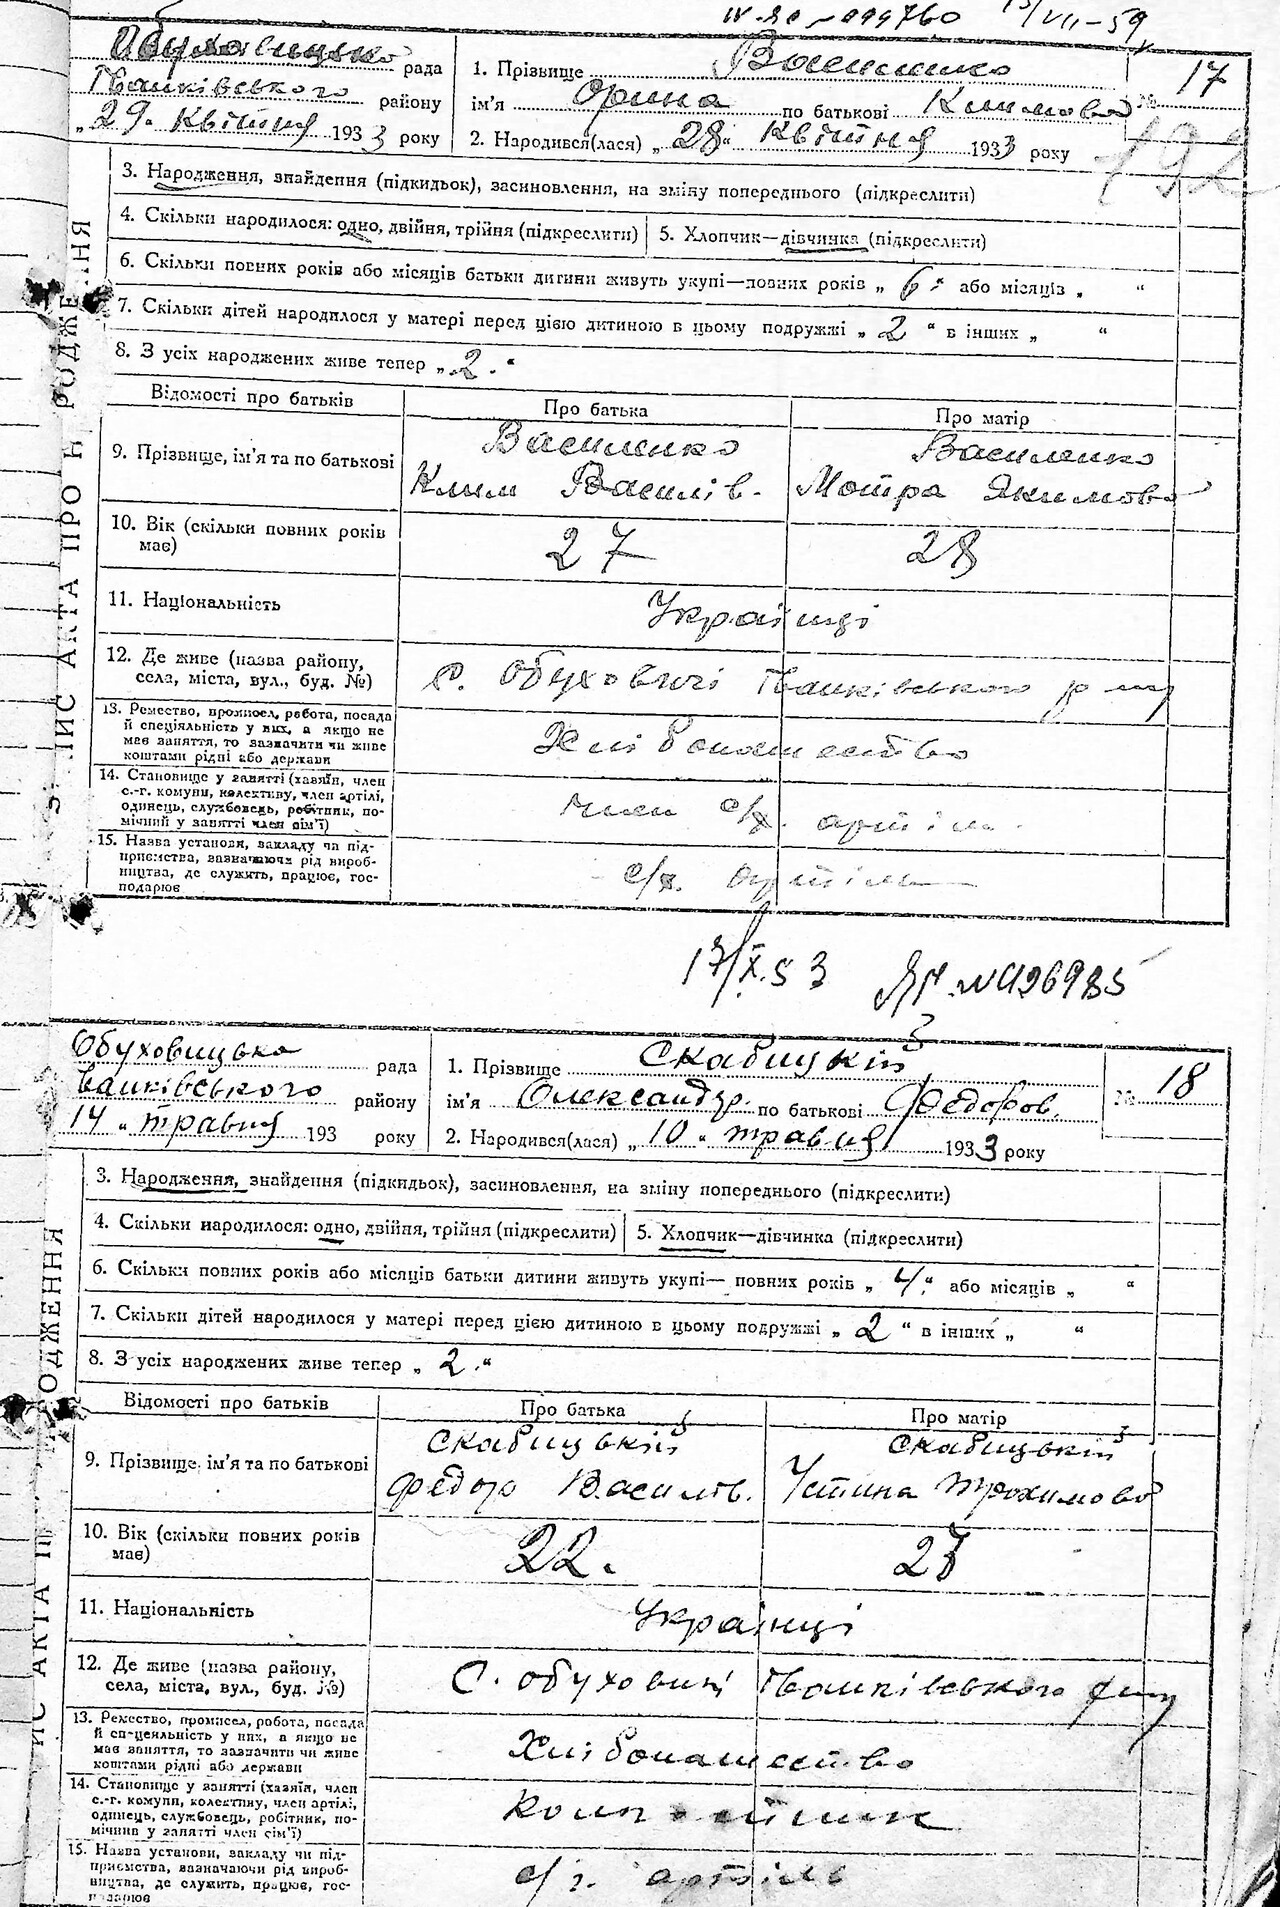 IV-
13/VII-59
Обуховицька рада
Іванківського району
„29" Квітня 1933 року
1. Прізвище Василенко
ім'я Орина по батькові Климова
2. Народився(лася) „28" Квітня 1933 року
№ 17
192
3. Народження, знайдення (підкидьок), засиновлення, на зміну попереднього (підкреслити)
4. Скільки народилося: одно, двійня, трійня (підкреслити)
5. Хлопчик—дівчинка (підкреслити)
6. Скільки повних років або місяців батьки дитини живуть укупі—повних років „6" або місяців „ "
7. Скільки дітей народилося у матері перед цією дитиною в цьому подружжі „2" в інших „ "
8. З усіх народжених живе тепер „2."
Відомості про батьків
Про батька
Про матір
9. Прізвище, ім'я та по батькові
Василенко
Клим Василів.
Василенко
Мотра Якимова
10. Вік (скільки повних років
має)
27
28
11. Національність
Українці
12. Де живе (назва району,
села, міста, вул., буд. №)
с. Обуховичі Іванківського р-ну
13. Ремество, промисел, робота, посада
й спеціяльність у них, а якщо не
має заняття, то зазначити чи живе
коштами рідні або держави
Хлібопашество
14. Становище у занятті (хазяїн, член
с.-г. комуни, колективу, член артілі,
одинець, службовець, робітник, по-
мічний у занятті член сім'ї)
член с/х. артіл.
15. Назва установи, закладу чи під-
приємства, зазначаючи рід вироб-
ництва, де служить, працює, гос-
подарює
с/х. артіль
17/X.53
№426985
Обуховицька рада
Іванківського району
14 „ травня 193 року
1. Прізвище Скабицкій
ім'я Олександр. по батькові Федоров.
2. Народився(лася) „10" травня 1933 року
№ 18
3. Народження, знайдення (підкидьок), засиновлення, на зміну попереднього (підкреслити)
4. Скільки народилося: одно, двійня, трійня (підкреслити)
5. Хлопчик—дівчинка (підкреслити)
6. Скільки повних років або місяців батьки дитини живуть укупі— повних років „4" або місяців „ "
7. Скільки дітей народилося у матері перед цією дитиною в цьому подружжі „2" в інших „ "
8. З усіх народжених живе тепер „2."
Відомості про батьків
Про батька
Про матір
9. Прізвище, ім'я та по батькові
Скабицькій
Федор Василів.
Скабицькій
Устина Трохимова
10. Вік (скільки повних років
має)
22.
11. Національність
Українці
12. Де живе (назва району,
села, міста, вул., буд. №)
С. Обуховичі Іванківського р-ну
13. Ремество, промисел, робота, посада
й спеціяльність у них, а якщо не
має заняття, то зазначити чи живе
коштами рідні або держави
Хлібопашество
14. Становище у занятті (хазяїн, член
с.-г. комуни, колективу, член артілі,
одинець, службовець, робітник, по-
мічний у занятті член сім'ї)
15. Назва установи, закладу чи під-
приємства, зазначаючи рід вироб-
ництва, де служить, працює, гос-
подарює
с/г. артіль